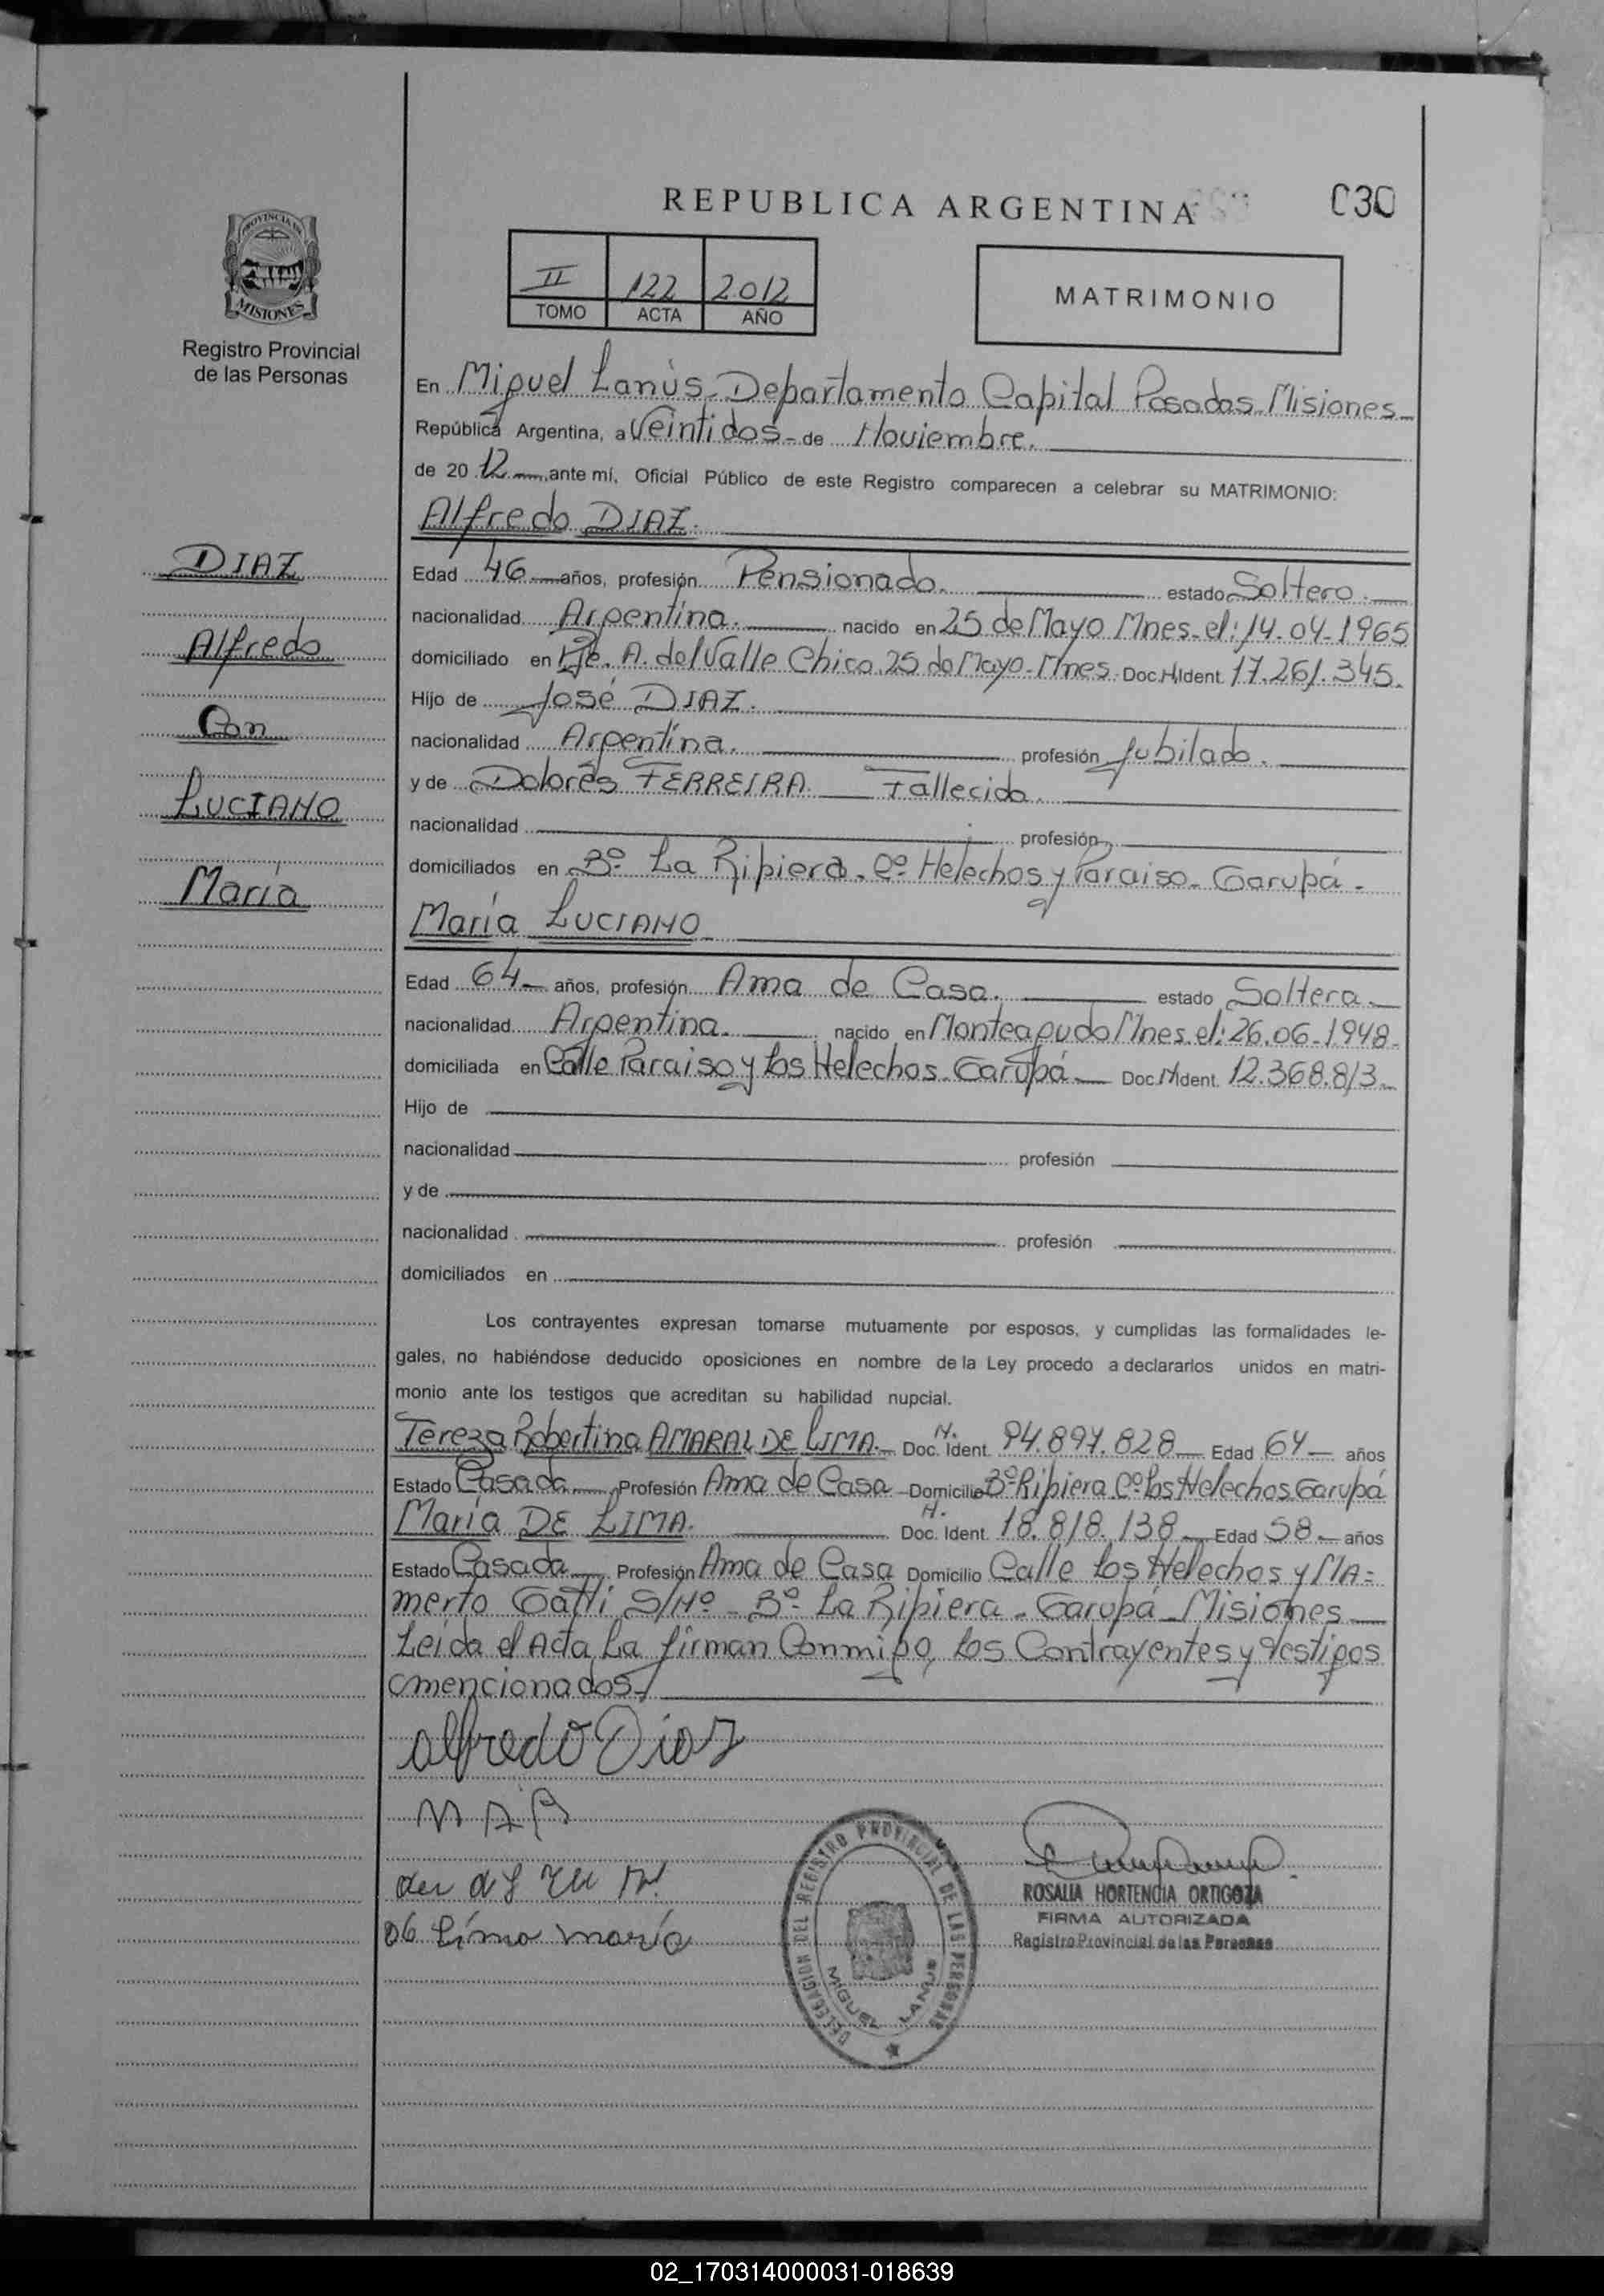 REPUBLICA ARGENTINA
030
II 122 2012
TOMO ACTA AÑO
MATRIMONIO
PROVINCIA DE
MISIONES
Registro Provincial
de las Personas
DIAZ
Alfredo
Con
LUCIANO
María
En Miguel Lanús. Departamento Capital Posadas. Misiones
República Argentina, a Veintidos de Noviembre.
de 2012 ante mí, Oficial Público de este Registro comparecen a celebrar su MATRIMONIO:
Alfredo DIAZ.
Edad 46 años, profesión Pensionado. estado Soltero.
nacionalidad Argentina. nacido en 25 de Mayo Mnes. el: 14-04-1965
domiciliado en Pje. A. del Valle Chico. 25 de Mayo. Mnes. Doc. N. Ident. 17.261.345.
Hijo de José DIAZ.
nacionalidad Argentina. profesión Jubilado.
y de Dolores FERREIRA. Fallecida.
nacionalidad profesión
domiciliados en Bº La Ribiera. Cº Helechos y Paraiso. Garupá.
María LUCIANO
Edad 64 años, profesión Ama de Casa. estado Soltera.
nacionalidad Argentina. nacido en Monteagudo Mnes. el: 26.06-1948
domiciliada en Calle Paraiso y los Helechos. Garupá Doc. N Ident. 12.368.813
Hijo de
nacionalidad profesión
y de
nacionalidad profesión
domiciliados en
Los contrayentes expresan tomarse mutuamente por esposos, y cumplidas las formalidades le-
gales, no habiéndose deducido oposiciones en nombre de la Ley procedo a declararlos unidos en matri-
monio ante los testigos que acreditan su habilidad nupcial.
Tereza Robertina AMARAL DE LIMA. Doc. N. Ident. 94.897.828 Edad 64 años
Estado Casada Profesión Ama de Casa Domicilio Bº Ribiera Cº los Helechos Garupá
María DE LIMA. Doc. N. Ident. 18.818.138 Edad 58 años
Estado Casada Profesión Ama de Casa Domicilio Calle los Helechos y MA=
merto Gatti S/Nº - Bº La Ribiera - Garupá - Misiones
Leida el Acta, La firman Conmigo, los Contrayentes y testigos
mencionados
alfredo Diaz
de Lima maria
DELEGACION DEL REGISTRO PROVINCIAL DE LAS PERSONAS
MIGUEL LANUS
ROSALIA HORTENCIA ORTIGOZA
FIRMA AUTORIZADA
Registro Provincial de las Personas
02_170314000031-018639